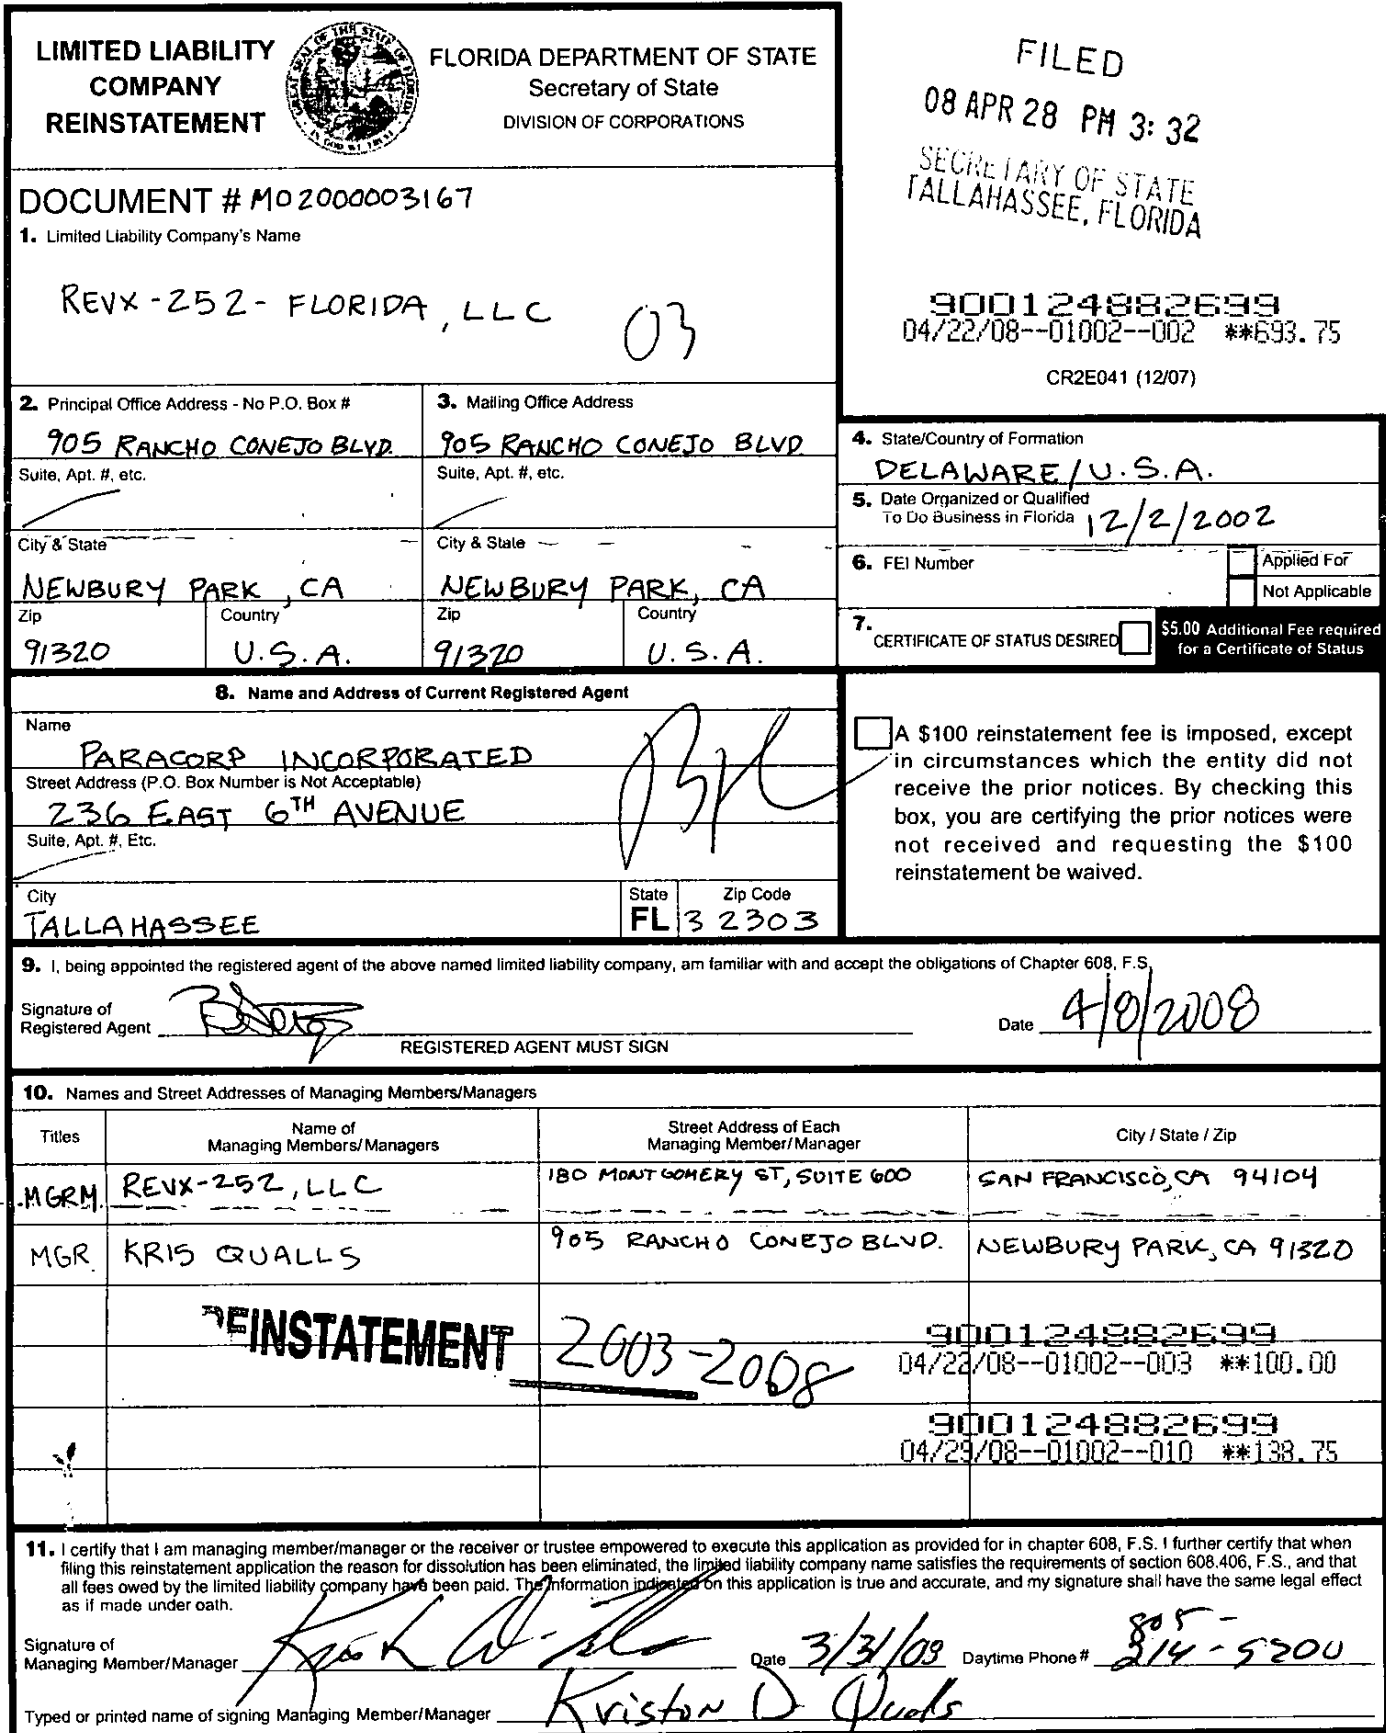 LIMITED LIABILITY
COMPANY
REINSTATEMENT
FLORIDA DEPARTMENT OF STATE
Secretary of State
DIVISION OF CORPORATIONS
FILED
08 APR 28 PM 3:32
SECRETARY OF STATE
TALLAHASSEE, FLORIDA
DOCUMENT # M02000003167
1. Limited Liability Company's Name
REVX-252-FLORIDA, LLC
03
900124882699
04/22/08--01002--002 **693.75
CR2E041 (12/07)
2. Principal Office Address - No P.O. Box #
905 RANCHO CONEJO BLVD.
Suite, Apt. #, etc.
City & State
NEWBURY PARK, CA
Zip
91320
Country
U.S.A.
3. Mailing Office Address
905 RANCHO CONEJO BLVD
Suite, Apt. #, etc.
City & State
NEWBURY PARK, CA
Zip
91320
Country
U.S.A.
4. State/Country of Formation
DELAWARE/U.S.A.
5. Date Organized or Qualified
To Do Business in Florida 12/2/2002
6. FEI Number
Applied For
Not Applicable
7. CERTIFICATE OF STATUS DESIRED
$5.00 Additional Fee required
for a Certificate of Status
8. Name and Address of Current Registered Agent
Name
PARACORP INCORPORATED
Street Address (P.O. Box Number is Not Acceptable)
236 EAST 6TH AVENUE
Suite, Apt. #, Etc.
City
TALLAHASSEE
State
FL
Zip Code
32303
A $100 reinstatement fee is imposed, except
in circumstances which the entity did not
receive the prior notices. By checking this
box, you are certifying the prior notices were
not received and requesting the $100
reinstatement be waived.
9. I, being appointed the registered agent of the above named limited liability company, am familiar with and accept the obligations of Chapter 608, F.S.
Signature of
Registered Agent
REGISTERED AGENT MUST SIGN
Date 4/8/2008
10. Names and Street Addresses of Managing Members/Managers
Titles
Name of
Managing Members/Managers
Street Address of Each
Managing Member/Manager
City / State / Zip
MGRM REVX-252, LLC 180 MONTGOMERY ST, SUITE 600 SAN FRANCISCO, CA 94104
MGR KRIS QUALLS 905 RANCHO CONEJO BLVD. NEWBURY PARK, CA 91320
REINSTATEMENT 2003-2008
900124882699
04/22/08--01002--003 **100.00
900124882699
04/29/08--01002--010 **138.75
11. I certify that I am managing member/manager or the receiver or trustee empowered to execute this application as provided for in chapter 608, F.S. I further certify that when
filing this reinstatement application the reason for dissolution has been eliminated, the limited liability company name satisfies the requirements of section 608.406, F.S., and that
all fees owed by the limited liability company have been paid. The information indicated on this application is true and accurate, and my signature shall have the same legal effect
as if made under oath.
Signature of
Managing Member/Manager
Date 3/31/08
Daytime Phone # 805-
214-5200
Typed or printed name of signing Managing Member/Manager Kriston D Qualls